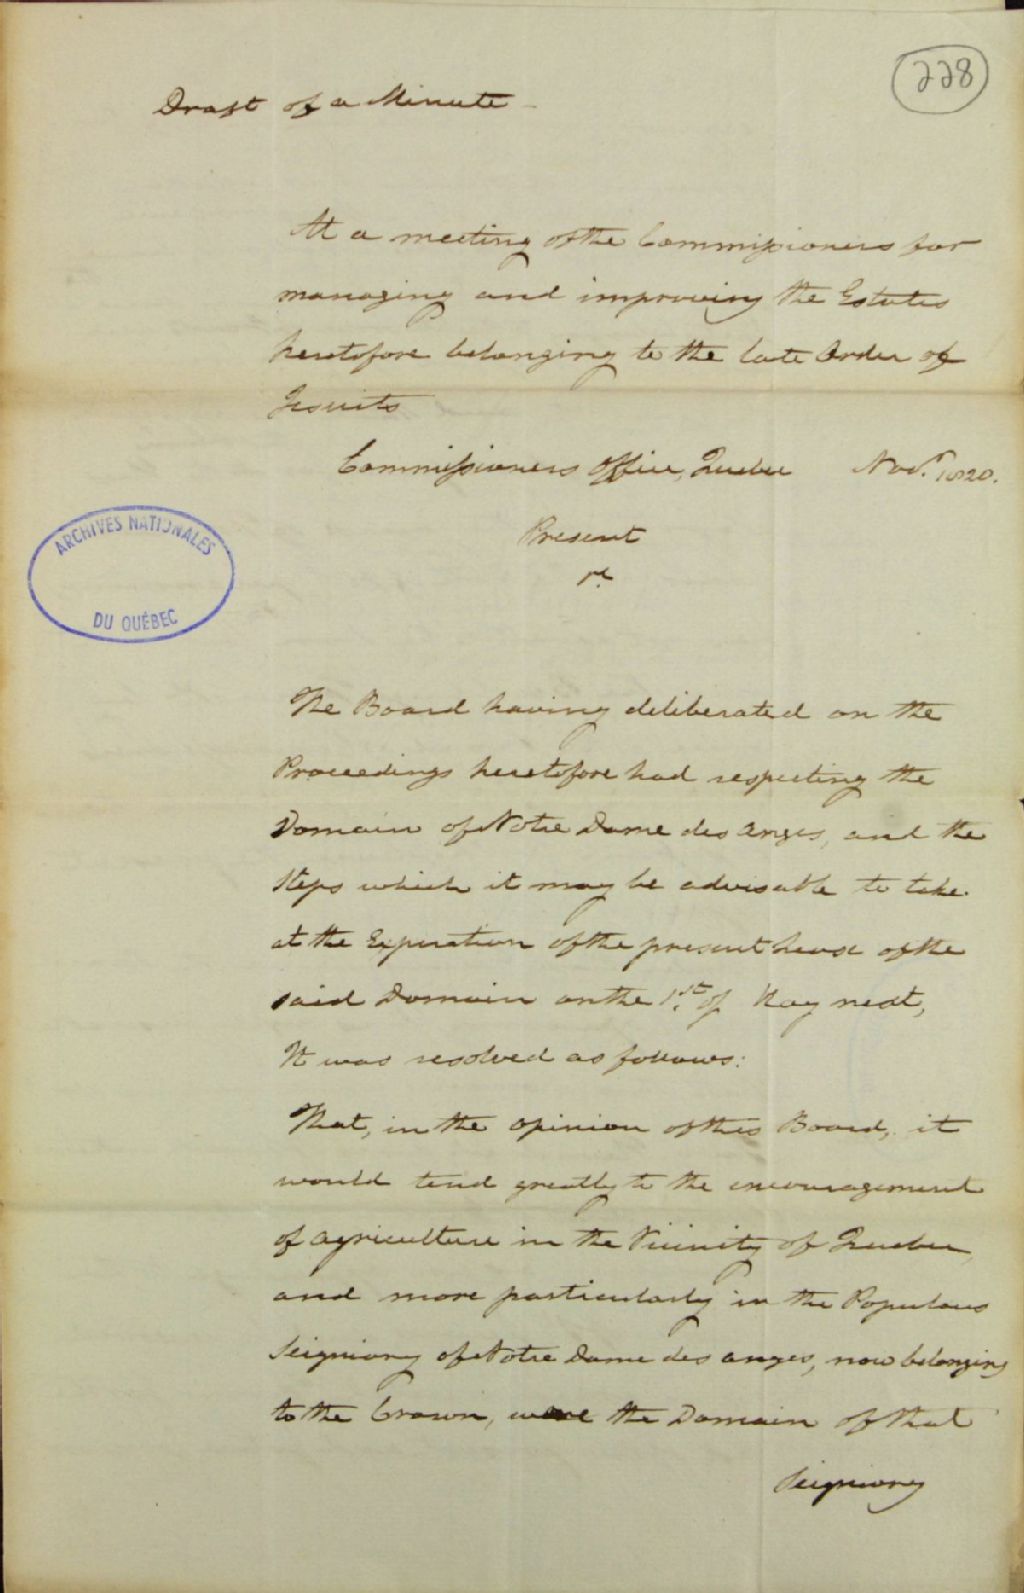 228
Draft of a Minute
At a meeting of the Commissioners for
managing and improving the Estates
heretofore belonging to the late Order of
Jesuits
Commissioners Office, Quebec Novr. 1820.
Present
ARCHIVES NATIONALES
DU QUÉBEC
The Board having deliberated on the
Proceedings heretofore had respecting the
Domain of Notre Dame des Anges, and the
Steps which it may be advisable to take
at the Expiration of the present Lease of the
said Domain on the 1st. of May next,
It was resolved as follows:
That, in the opinion of this Board, it
would tend greatly to the encouragement
of agriculture in the Vicinity of Quebec,
and more particularly in the Populous
Seigniory of Notre Dame des Anges, now belonging
to the Crown, were the Domain of that
Seigniory